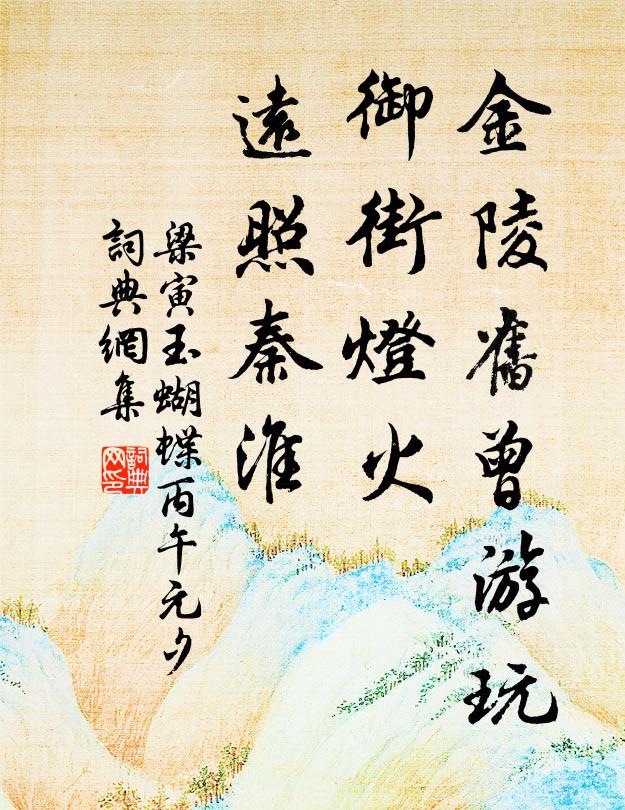 金陵舊曾游玩
御街燈火
遠照秦淮
梁寅玉蝴蝶丙午元夕
詞典網集
詞典网印